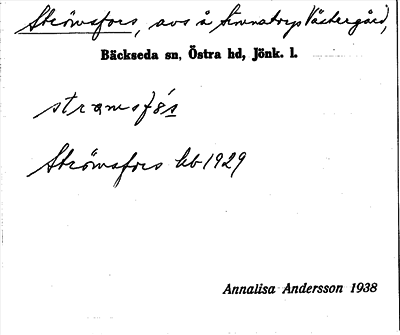 Strömsfors, avs å Simnatorps Västergård,
Bäckseda sn, Östra hd, Jönk. l.
strömsfo̤s
Strömsfors hb 1929
Annalisa Andersson 1938